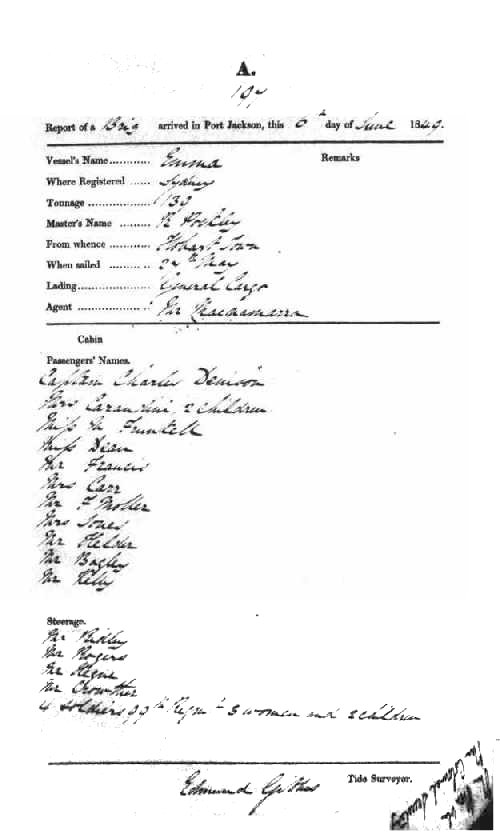 A.
197
Report of a Brig arrived in Port Jackson, this 6th day of June 1849.
Vessel's Name........... Emma
Remarks
Where Registered ...... Sydney
Tonnage .................. 133
Master's Name ......... R
From whence ........... Hobart Town
When sailed .......... 24th May
Lading.................... General Cargo
Agent .................... Mr Macnamara
Cabin
Passengers' Names.
Captain Charles Denison
Mrs Carandini, 2 children
Miss M
Miss Dean
Mr Francis
Mrs Carr
Mr F Moller
Mrs Jones
Mr Helder
Mr Bagley
Mr Kelly
Steerage.
Mr Ridley
Mr Rogers
Mr
Mr Crowther
4 Soldiers 99th Regmt 3 women and 2 children
Edmund
Tide Surveyor.